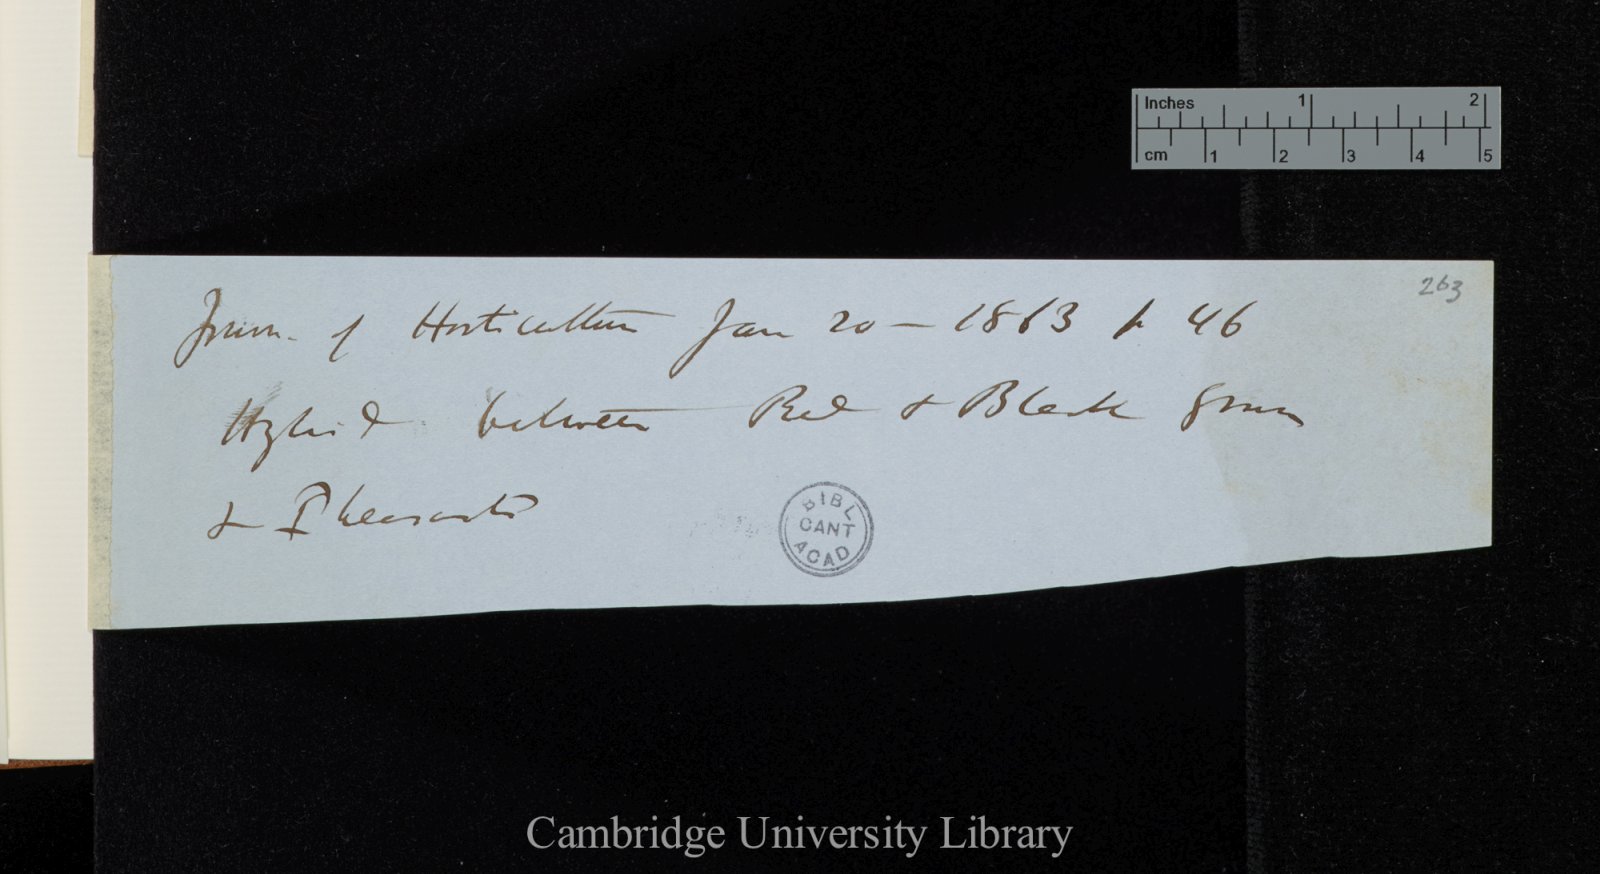 Inches 1 2
cm 1 2 3 4 5
263
Journ. of Horticulture Jan 20 — 1863 p 46
Hybrid between Red & Black Grouse
& Pheasants
BIBL
CANT
ACAD
Cambridge University Library